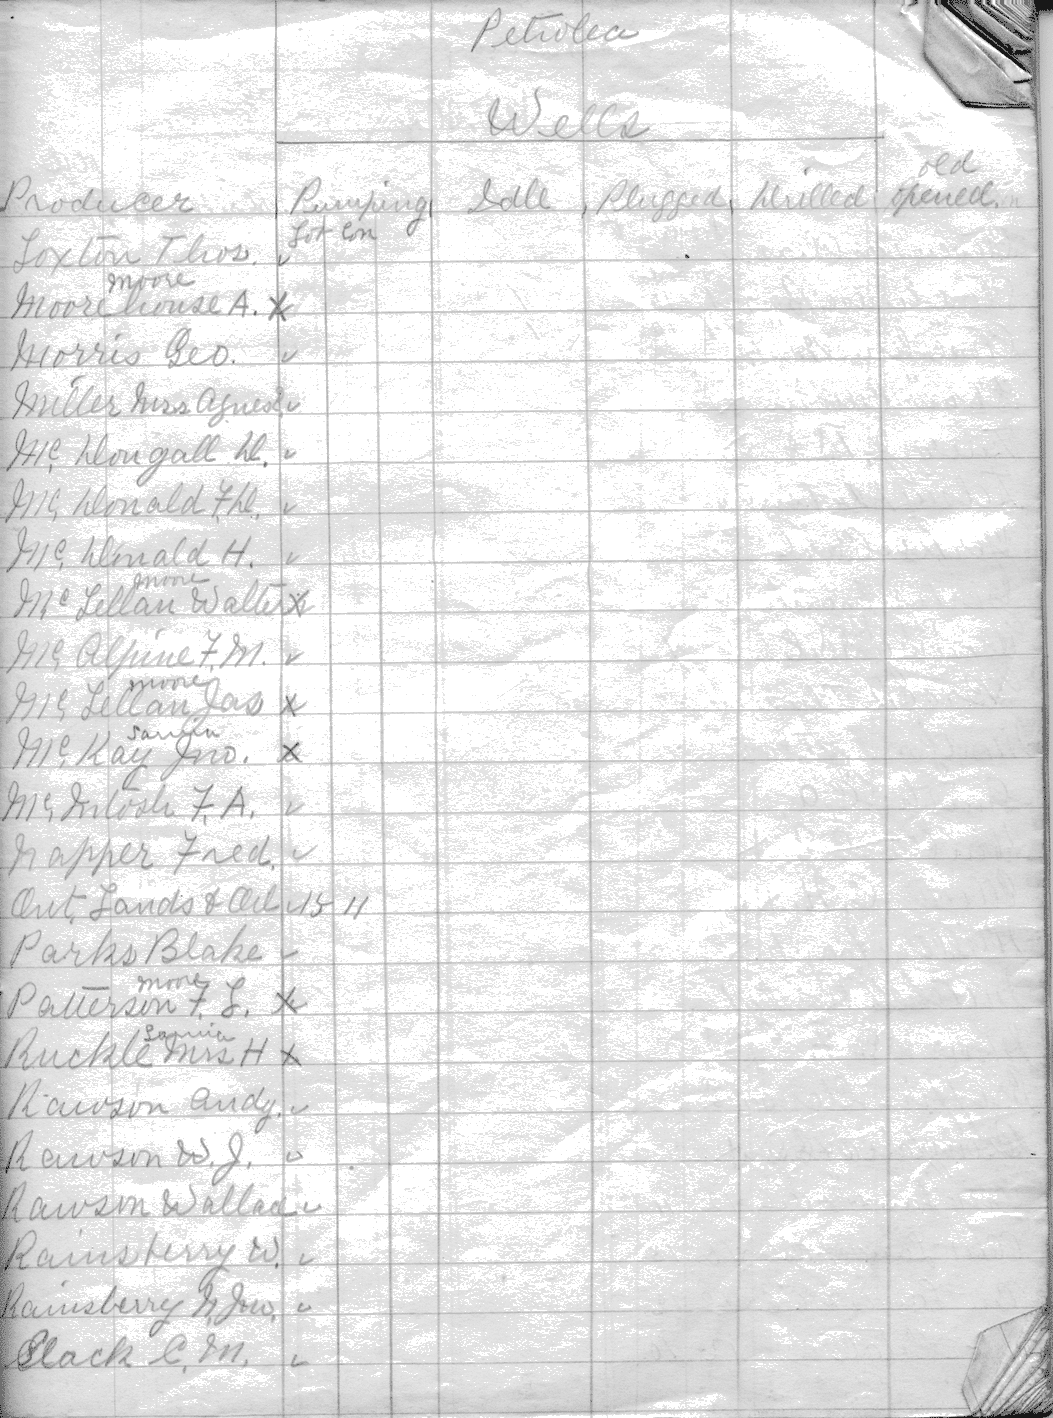 Petrolea
Wells
Producer Pumping Idle Plugged Drilled old opened
Lot Con
Loxton Thos. ✓
Moore
Moorehouse A. X
Morris Geo. ✓
Miller Mrs. Agnes ✓
Mc Dougall D. ✓
Mc Donald F.D. ✓
Mc Donald H. ✓
Moore
Mc Lellan Walter X
Mc Alpine F.M. ✓
Moore
Mc Lellan Jas X
Sarnia
Mc Kay Jno. X
Mc Intosh F.A. ✓
Napper Fred. ✓
Ont. Lands & Oil ✓ 15 11
Parks Blake ✓
Moore
Patterson F. L. X
Sarnia
Ruckle Mrs H X
Rawson Andy. ✓
Rawson W.J. ✓
Rawson Wallace ✓
Rainsberry W. ✓
Rainsberry Jno. ✓
Slack C.M. ✓